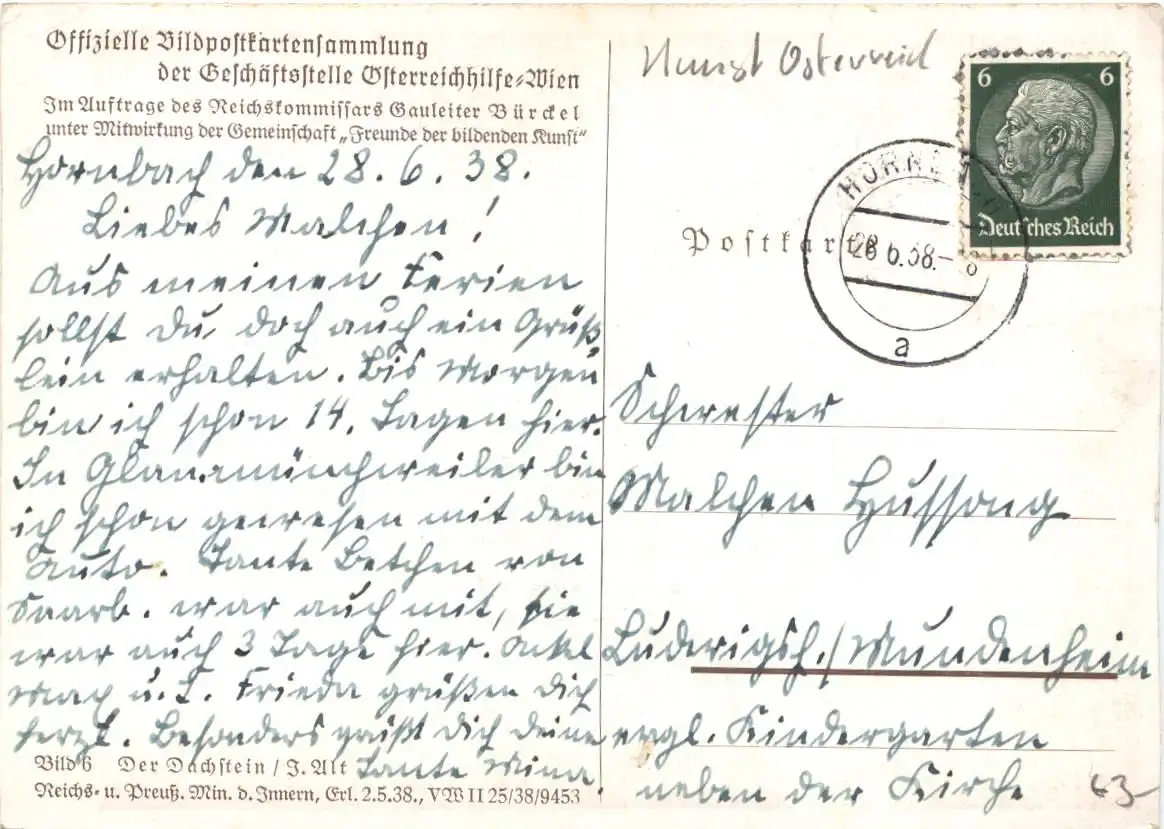 Offizielle Bildpostkartensammlung
der Geschäftsstelle Österreichhilfe-Wien
Im Auftrage des Reichskommissars Gauleiter Bürckel
unter Mitwirkung der Gemeinschaft „Freunde der bildenden Kunst“
Hornbach den 28. 6. 38.
Liebes Malchen!
Aus meinen Ferien
sollst Du, doch auch ein Grüß-
lein erhalten. Bis Morgen
bin ich schon 14. Tagen hier.
In Glanmünchweiler bin
ich schon gewesen mit dem
Auto. Tante Betchen von
Saarb. war auch mit, sie
war auch 3 Tage hier. Onkel
Max u. T. Frieda grüßen Dich
herzl. Besonders grüßt Dich Deine
Tante Mina.
Bild 6 Der Dachstein / J. Alt
Reichs- u. Preuß. Min. d. Innern, Erl. 2.5.38., VW II 25/38/9453
Kunst Österreich
6 6
Deutsches Reich
Postkarte
HORNBACH
28 6.38.-8
a
Schwester
Malchen Hussong
Ludwigsh./Mundenheim
evgl. Kindergarten
neben der Kirche
63